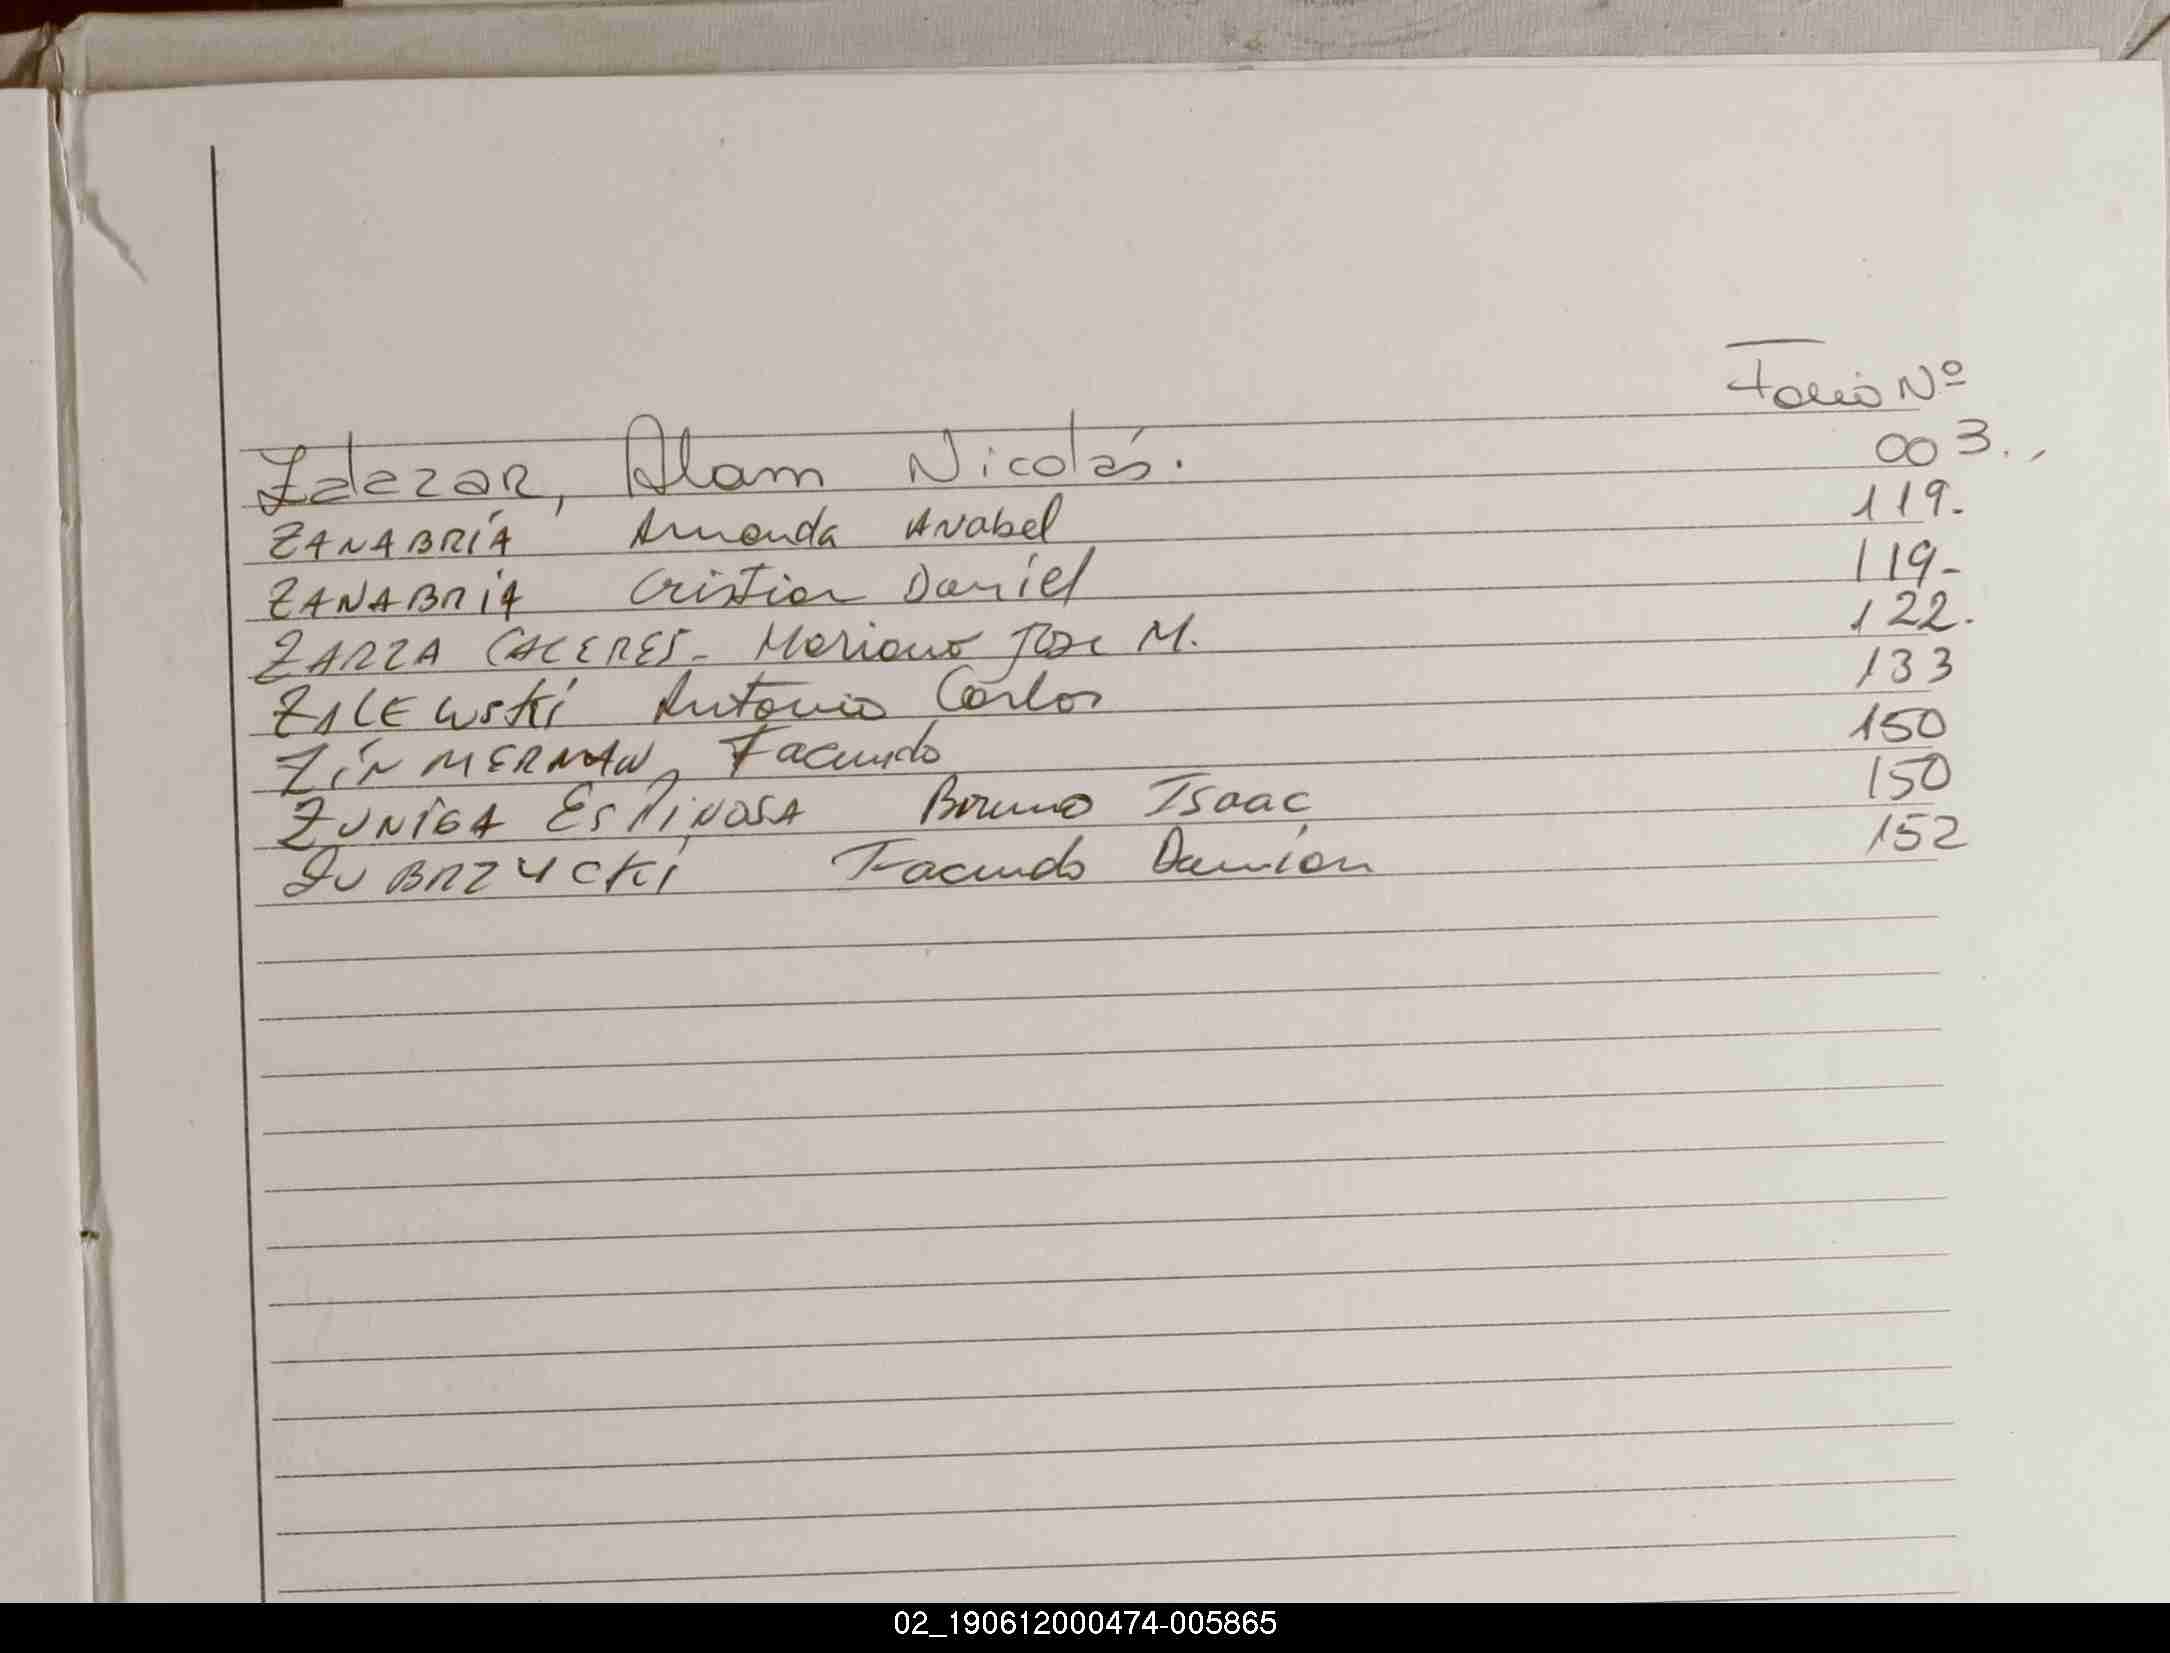 Folio Nº
Zalazar, Alam Nicolás. 003.,
ZANABRÍA Amanda Anabel 119-
ZANABRÍA Cristian Daniel 119-
ZARZA CACERES- Mariano Jose M. 122.
ZALEWSKI Antonio Carlos 133
ZINMERMAN, Facundo 150
ZUNIGA ESPINOSA Bruno Isaac 150
ZUBRZYCKI Facundo Damián 152
02_190612000474-005865